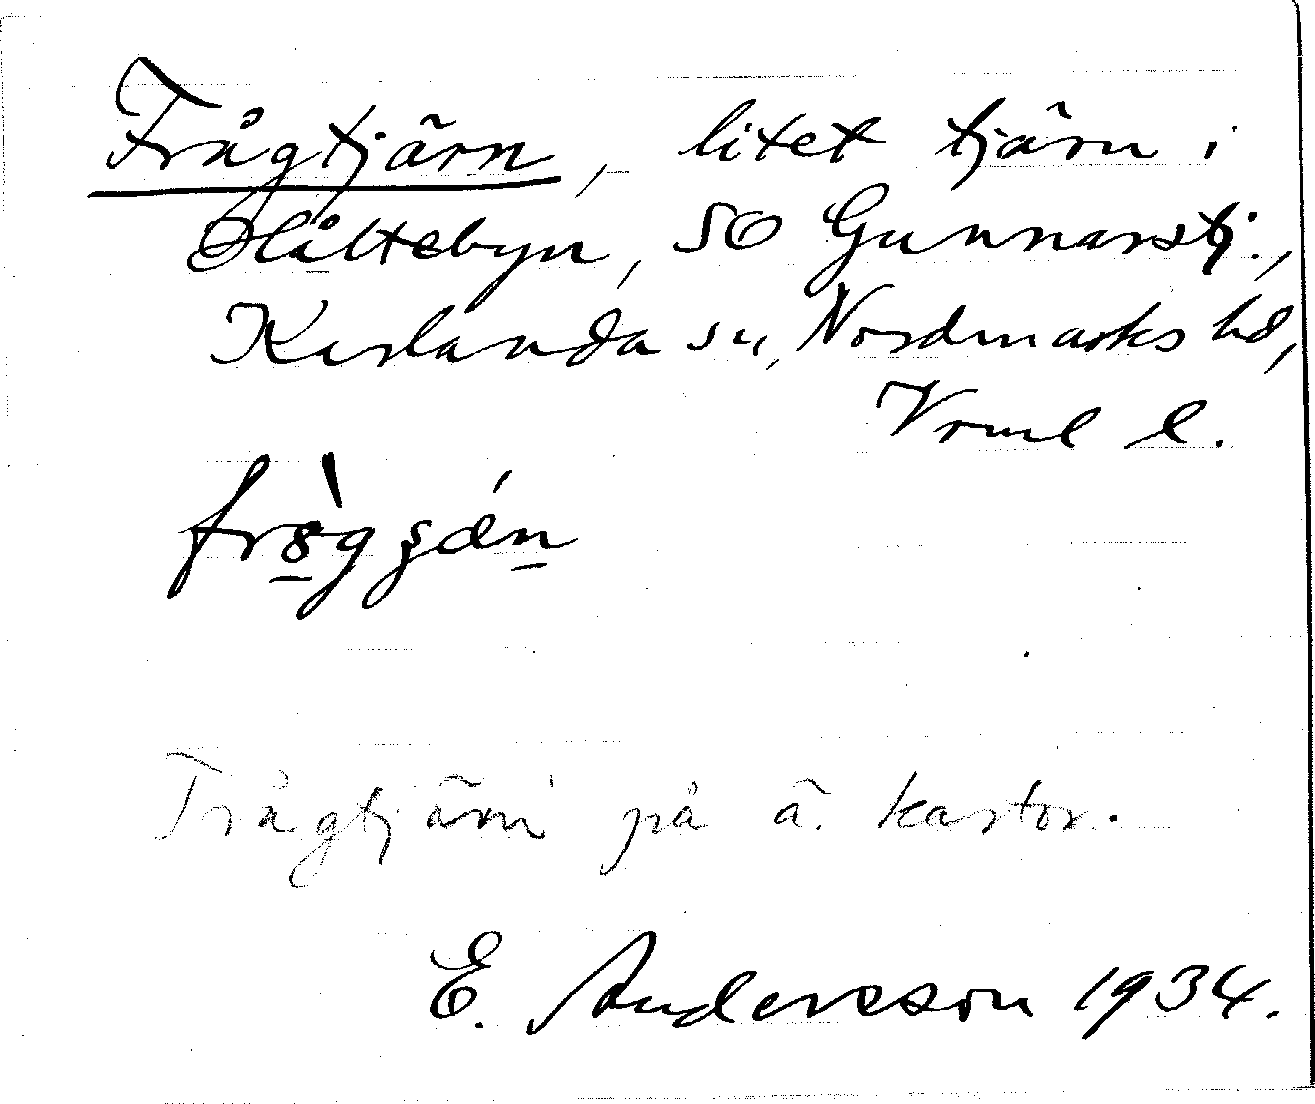 Frågtjärn, litet tjärn i
Slåttebyn, SO Gunnarstj.,
Karlanda sn, Nordmarks hd,
Vrml l.
Trågtjärn på ä. kartor.
E. Andersson 1934.